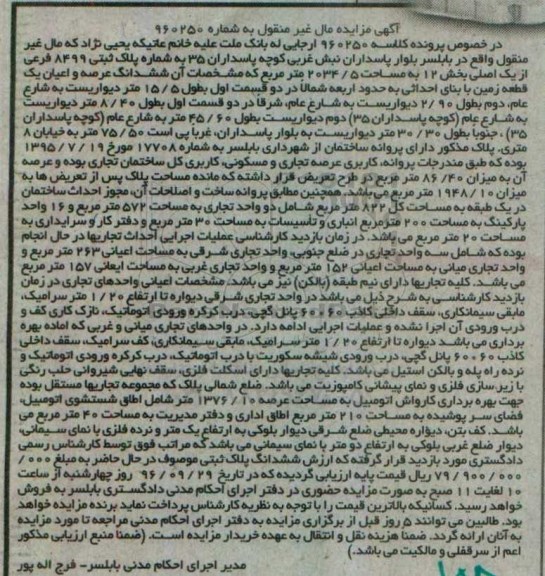 آگهی مزایده مال غیر منقول به شماره ۹۶۰۲۵۰
در خصوص پرونده کلاسه ۹۶۰۲۵۰ ارجایی له بانک ملت علیه خانم عاتیکه یحیی نژاد که مال غیر
منقول واقع در بابلسر بلوار پاسداران نبش غربی کوچه پاسداران ۳۵ به شماره پلاک ثبتی ۸۴۹۹ فرعی
از یک اصلی بخش ۱۲ به مساحت ۲۰۳۴/۵ متر مربع که مشخصات آن ششدانگ عرصه و اعیان یک
قطعه زمین با بنای احداثی به حدود اربعه شمالا در دو قسمت اول بطول ۱۵/۵ متر دیواریست به شارع
عام، دوم بطول ۲/۹۰ دیواریست به شارع عام، شرقا در دو قسمت اول بطول ۸/۴۰ متر دیواریست
به شارع عام (کوچه پاسداران ۳۵) دوم دیواریست بطول ۴۵/۶۰ متر به شارع عام (کوچه پاسداران
۳۵) ، جنوبا بطول ۳۰/۳۰ متر دیواریست به بلوار پاسداران، غربا پی است ۷۵/۵۰ متر به خیابان ۸
متری. پلاک مذکور دارای پروانه ساختمان از شهرداری بابلسر به شماره ۱۷۷۰۸ مورخ ۱۳۹۵/۷/۱۹
بوده که طبق مندرجات پروانه، کاربری عرصه تجاری و مسکونی، کاربری کل ساختمان تجاری بوده و عرصه
آن به میزان ۸۶/۴۰ متر مربع در طرح تعریض قرار داشته که مانده مساحت پلاک پس از تعریض ها به
میزان ۱۹۴۸/۱۰ متر مربع می باشد. همچنین مطابق پروانه ساخت و اصلاحات آن، مجوز احداث ساختمان
در یک طبقه به مساحت کل ۸۲۲ متر مربع شامل دو واحد تجاری به مساحت ۵۷۲ متر مربع و ۱۶ واحد
پارکینگ به مساحت ۲۰۰ مترمربع انباری و تأسیسات به مساحت ۳۰ متر مربع و دفتر کار و سرایداری به
مساحت ۲۰ متر مربع می باشد. در زمان بازدید کارشناسی عملیات اجرایی احداث تجاریها در حال انجام
بوده که شامل سه واحد تجاری در ضلع جنوبی، واحد تجاری شرقی به مساحت اعیانی ۲۶۳ متر مربع و
واحد تجاری میانی به مساحت اعیانی ۱۵۲ متر مربع و واحد تجاری غربی به مساحت ایعانی ۱۵۷ متر مربع
می باشد. کلیه تجاریها دارای نیم طبقه (بالکن) نیز می باشد. مشخصات اعیانی واحدهای تجاری در زمان
بازدید کارشناسی به شرح ذیل می باشد در واحد تجاری شرقی دیواره تا ارتفاع ۱/۲۰ متر سرامیک،
مابقی سیمانکاری، سقف داخلی کاذب ۶۰*۶۰ پانل گچی، درب کرکره ورودی اتوماتیک، نازک کاری کف و
درب ورودی آن اجرا نشده و عملیات اجرایی ادامه دارد. در واحدهای تجاری میانی و غربی که اماده بهره
برداری می باشد دیواره تا ارتفاع ۱/۲۰ متر سرامیک، مابقی سیمانکاری، کف سرامیک، سقف داخلی
کاذب ۶۰*۶۰ پانل گچی، درب ورودی شیشه سکوریت با درب اتوماتیک، درب کرکره ورودی اتوماتیک و
نرده راه پله و بالکن استیل می باشد. کلیه تجاریها دارای اسکلت فلزی، سقف نهایی شیروانی حلب رنگی
با زیرسازی فلزی و نمای پیشانی کامپوزیت می باشد. ضلع شمالی پلاک که مجموعه تجاریها مستقل بوده
جهت بهره برداری کارواش اتومبیل به مساحت عرصه ۱۳۷۶/۱۰ متر شامل اطاق شستشوی اتومبیل،
فضای سر پوشیده به مساحت ۲۱۰ متر مربع اطاق اداری و دفتر مدیریت به مساحت ۴۰ متر مربع می
باشد. کف بتن، دیواره محیطی ضلع شرقی دیوار بلوکی به ارتفاع یک متر و نرده فلزی با نمای سیمانی،
دیوار ضلع غربی بلوکی به ارتفاع دو متر با نمای سیمانی می باشد که مراتب فوق توسط کارشناس رسمی
دادگستری مورد بازدید قرار گرفته که ارزش ششدانگ پلاک ثبتی موصوف در حال حاضر به مبلغ ۰۰۰/
۷۹/۹۰۰/۰۰۰ ریال قیمت پایه ارزیابی گردیده که در تاریخ ۹۶/۰۹/۲۹ روز چهارشنبه از ساعت
۱۰ لغایت ۱۱ صبح به صورت مزایده حضوری در دفتر اجرای احکام مدنی دادگستری بابلسر به فروش
خواهد رسید. کسانیکه بالاترین قیمت را با توجه به نظریه کارشناس پرداخت نماید برنده مزایده خواهد
بود. طالبین می توانند ۵ روز قبل از برگزاری مزایده به دفتر اجرای احکام مدنی مراجعه تا مورد مزایده
به آنان ارائه گردد. ضمنا هزینه نقل و انتقال به عهده خریدار مزایده است. (ضمنا منبع ارزیابی مذکور
اعم از سرقفلی و مالکیت می باشد.)
مدیر اجرای احکام مدنی بابلسر- فرج اله پور